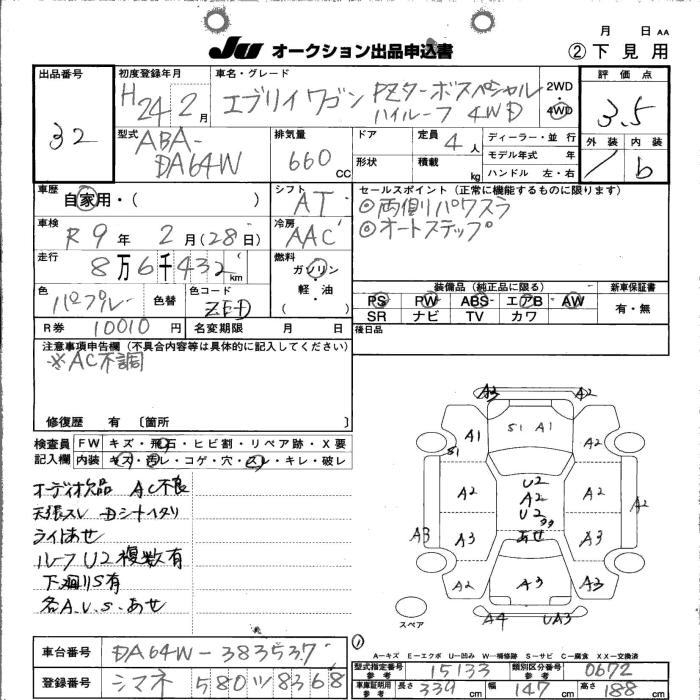 月 日 AA
JU オークション出品申込書
② 下見用
出品番号
32
初度登録年月
H24年2月
車名・グレード
エブリイワゴン PZターボスペシャル
ハイルーフ 4WD
2WD
4WD
評価点
3.5
外装 内装
b
型式
ABA-
DA64W
排気量
660 CC
ドア
形状
定員 4人
積載 kg
ディーラー・並行
モデル年式 年
ハンドル 左・右
車歴
自家用・( )
シフト
AT
セールスポイント (正常に機能するものに限ります)
◎両側パワスラ
◎オートステップ
車検
R9年2月(28日)
冷房
AAC
走行
8万6千432km
燃料
ガソリン
軽・油
( )
色
パープル
色替
色コード
ZED
装備品 (純正品に限る)
PS PW ABS エアB AW
SR ナビ TV カワ
新車保証書
有・無
R券 10010円
名変期限 月 日
後日品
注意事項申告欄 (不具合内容等は具体的に記入してください)
※AC不調
修復歴 有 〔箇所 〕
検査員
記入欄
FW キズ・飛石・ヒビ割・リペア跡・X要
内装 キズ・汚レ・コゲ・穴・スレ・キレ・破レ
オーディオ欠品 AC不良
天張スレ Dシートヘタリ
ライトあせ
ルーフU2複数有
下廻りS有
各A.U.S.あせ
A3 A2
A1 S1 A1 A2
S1
A2 U2 A2 A2
A2
U2
タタ
A3 A3 あせ A3
A2 A3 A3
A4 UA3
スペア
A=キズ E=エクボ U=凹み W=補修跡 S=サビ C=腐食 XX=交換済
車台番号
DA64W-383537
登録番号
シマネ 580 ツ 8368
①
型式指定番号
参考
15133
類別区分番号
参考
0672
車庫証明用
参考
長さ 339 cm 幅 147 cm 高さ 188 cm